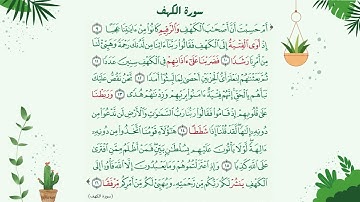 سورة الكهف
أَمْ حَسِبْتَ أَنَّ أَصْحَٰبَ ٱلْكَهْفِ وَٱلرَّقِيمِ كَانُوا۟ مِنْ ءَايَٰتِنَا عَجَبًا ٩
إِذْ أَوَى ٱلْفِتْيَةُ إِلَى ٱلْكَهْفِ فَقَالُوا۟ رَبَّنَآ ءَاتِنَا مِن لَّدُنكَ رَحْمَةً وَهَيِّئْ لَنَا
مِنْ أَمْرِنَا رَشَدًا ١٠ فَضَرَبْنَا عَلَىٰٓ ءَاذَانِهِمْ فِى ٱلْكَهْفِ سِنِينَ عَدَدًا ١١
ثُمَّ بَعَثْنَٰهُمْ لِنَعْلَمَ أَىُّ ٱلْحِزْبَيْنِ أَحْصَىٰ لِمَا لَبِثُوٓا۟ أَمَدًا ١٢ نَّحْنُ نَقُصُّ عَلَيْكَ
نَبَأَهُم بِٱلْحَقِّ إِنَّهُمْ فِتْيَةٌ ءَامَنُوا۟ بِرَبِّهِمْ وَزِدْنَٰهُمْ هُدًى ١٣ وَرَبَطْنَا
عَلَىٰ قُلُوبِهِمْ إِذْ قَامُوا۟ فَقَالُوا۟ رَبُّنَا رَبُّ ٱلسَّمَٰوَٰتِ وَٱلْأَرْضِ لَن نَّدْعُوَا۟ مِن
دُونِهِۦٓ إِلَٰهًا لَّقَدْ قُلْنَآ إِذًا شَطَطًا ١٤ هَٰٓؤُلَآءِ قَوْمُنَا ٱتَّخَذُوا۟ مِن دُونِهِۦٓ
ءَالِهَةً لَّوْلَا يَأْتُونَ عَلَيْهِم بِسُلْطَٰنٍۭ بَيِّنٍ فَمَنْ أَظْلَمُ مِمَّنِ ٱفْتَرَىٰ
عَلَى ٱللَّهِ كَذِبًا ١٥ وَإِذِ ٱعْتَزَلْتُمُوهُمْ وَمَا يَعْبُدُونَ إِلَّا ٱللَّهَ فَأْوُۥٓا۟ إِلَى
ٱلْكَهْفِ يَنشُرْ لَكُمْ رَبُّكُم مِّن رَّحْمَتِهِۦ وَيُهَيِّئْ لَكُم مِّنْ أَمْرِكُم مِّرْفَقًا ١٦
(سورة الكهف)